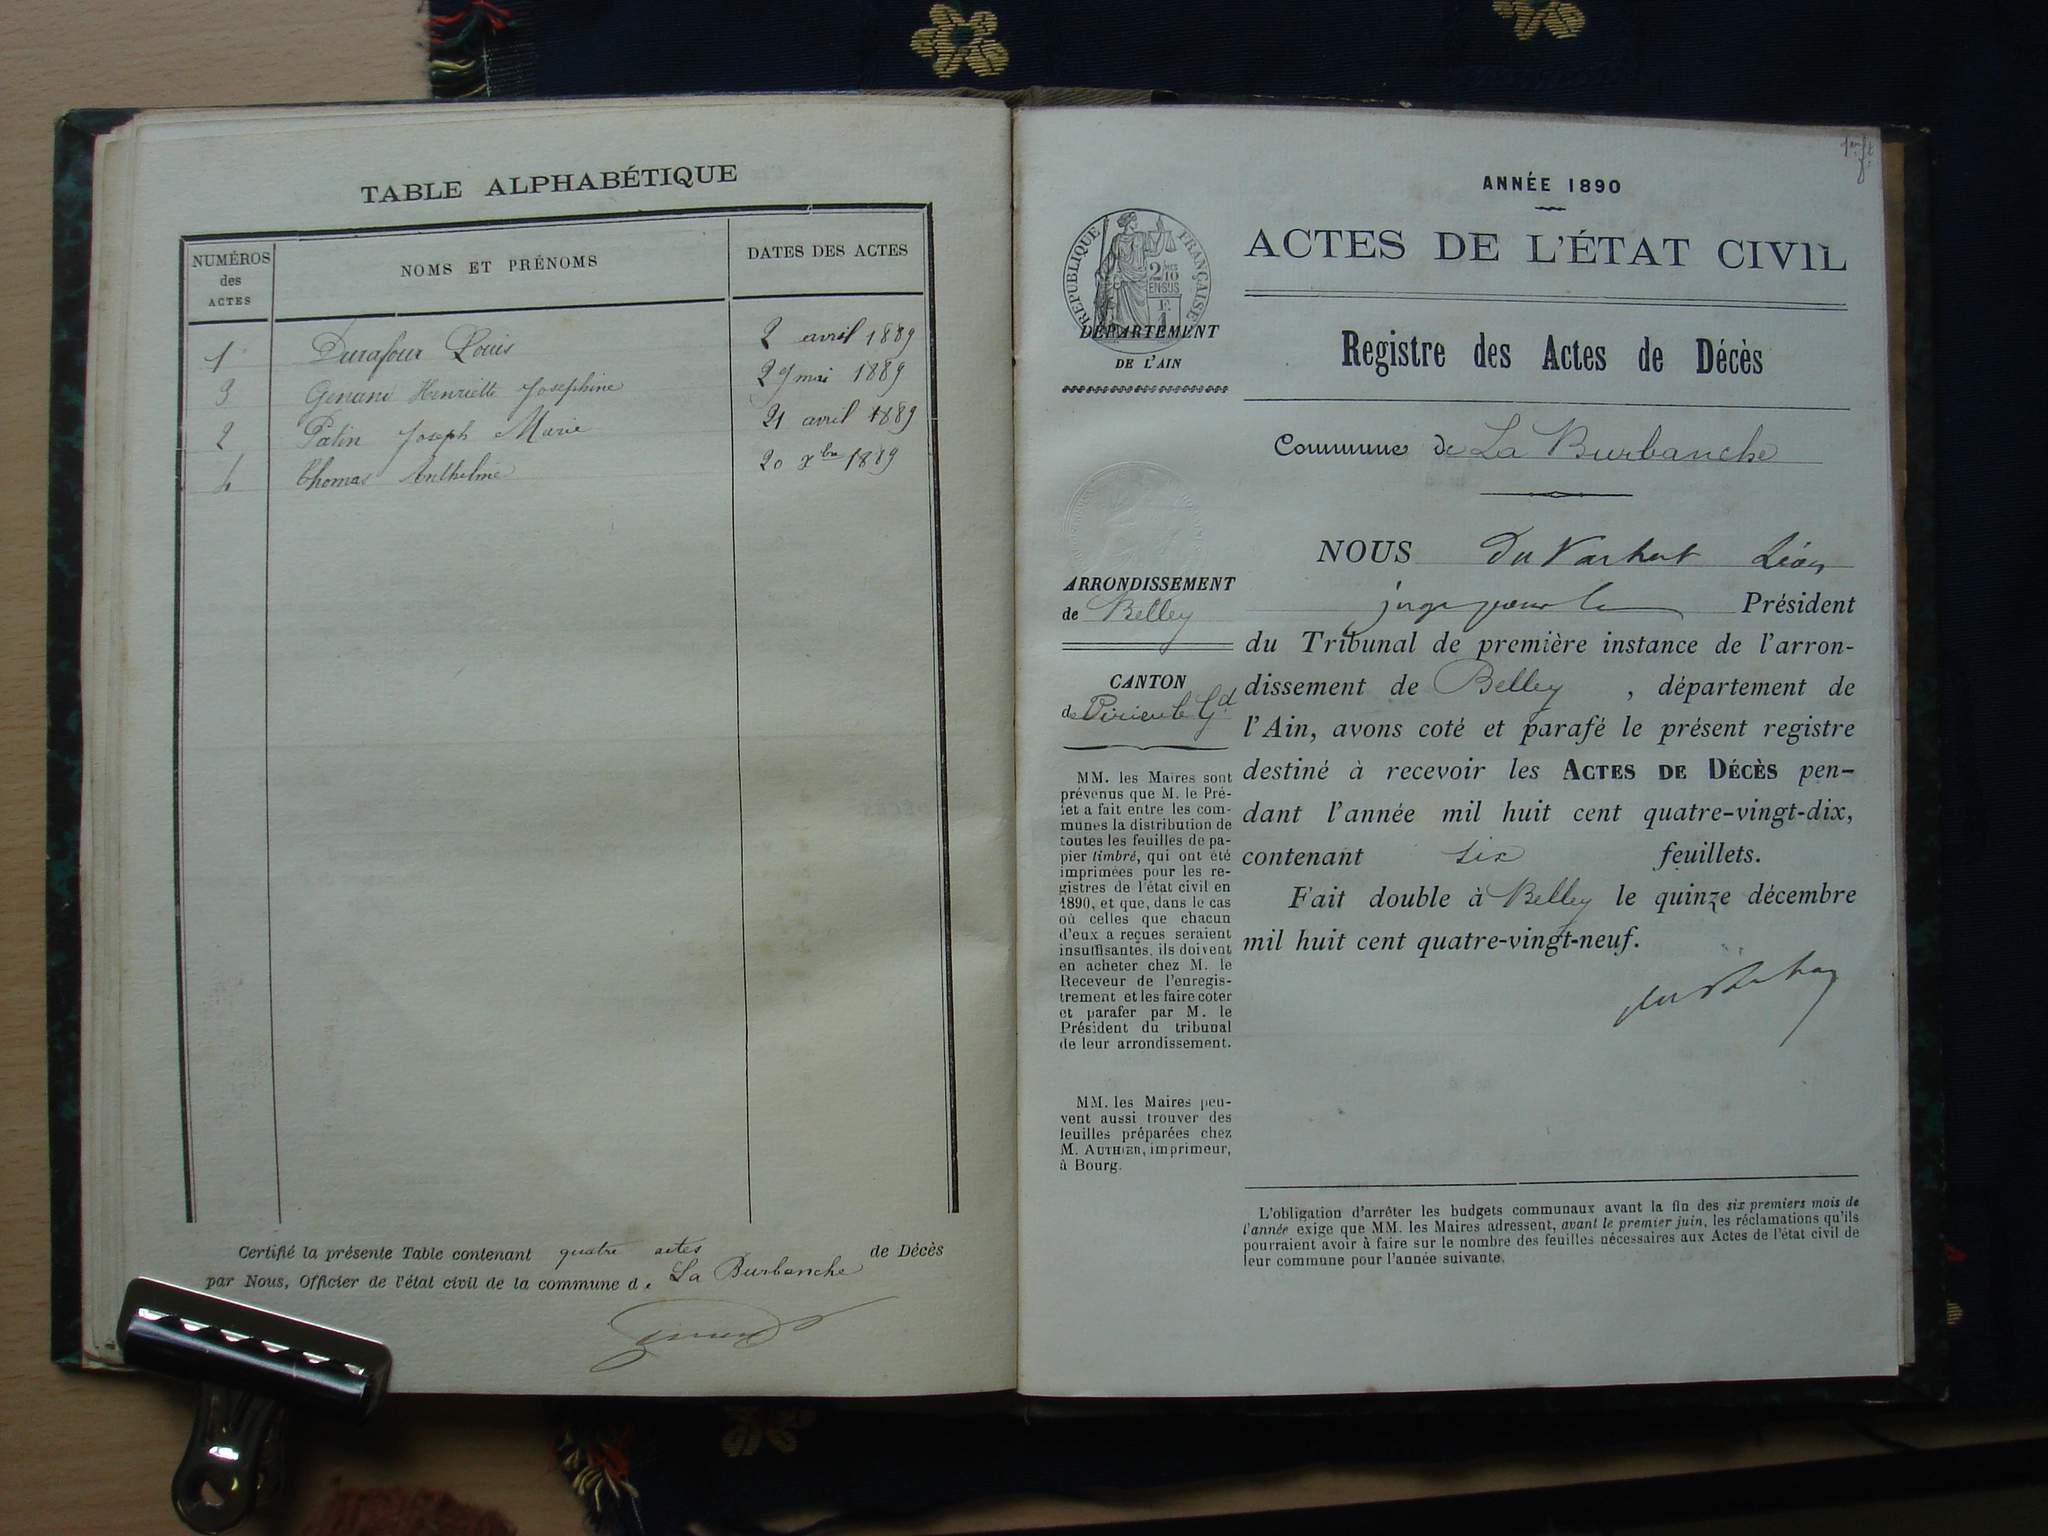 TABLE ALPHABÉTIQUE
NUMÉROS des ACTES
NOMS ET PRÉNOMS
DATES DES ACTES
1 Durafour Louis 2 avril 1889
3 Henriette Josephine 29 mai 1889
2 Patin Joseph Marie 21 avril 1889
4 Thomas Anthelme 20 xbre 1889
Certifié la présente Table contenant quatre actes de Décès
par Nous, Officier de l'état civil de la commune de La Burbanche
ANNÉE 1890
ACTES DE L'ÉTAT CIVIL
RÉPUBLIQUE FRANÇAISE
2 10
EN SUS
DÉPARTEMENT
DE L'AIN
Registre des Actes de Décès
Commune de La Burbanche
ARRONDISSEMENT
de Belley
CANTON
de Virieu le Gd
MM. les Maires sont
prévenus que M. le Pré-
fet a fait entre les com-
munes la distribution de
toutes les feuilles de pa-
pier timbré, qui ont été
imprimées pour les re-
gistres de l'état civil en
1890, et que, dans le cas
où celles que chacun
d'eux a reçues seraient
insuffisantes, ils doivent
en acheter chez M. le
Receveur de l'enregis-
trement et les faire coter
et parafer par M. le
Président du tribunal
de leur arrondissement.
MM. les Maires peu-
vent aussi trouver des
feuilles préparées chez
M. AUTHIER, imprimeur,
à Bourg.
NOUS Léon
juge pour le Président
du Tribunal de première instance de l'arron-
dissement de Belley, département de
l'Ain, avons coté et parafé le présent registre
destiné à recevoir les ACTES DE DÉCÈS pen-
dant l'année mil huit cent quatre-vingt-dix,
contenant six feuillets.
Fait double à Belley le quinze décembre
mil huit cent quatre-vingt-neuf.
L'obligation d'arrêter les budgets communaux avant la fin des six premiers mois de
l'année exige que MM. les Maires adressent, avant le premier juin, les réclamations qu'ils
pourraient avoir à faire sur le nombre des feuilles nécessaires aux Actes de l'état civil de
leur commune pour l'année suivante.